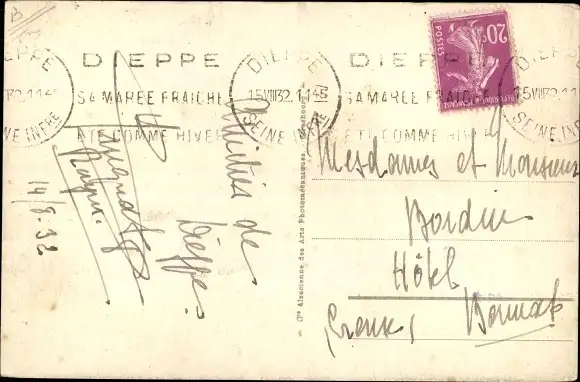 B
DIEPPE
15 VIII 32. 11 45
SEINE INFRE
DIEPPE
SA MAREE FRAICHE
ETE COMME HIVER
DIEPPE
15 VIII 32. 11 45
SEINE INFRE
DIEPPE
SA MAREE FRAICHE
ETE COMME HIVER
20c
POSTES
15 VIII 32. 11 45
SEINE INFRE
Amitiés de
Dieppe.
14/8.32
Alsacienne des Arts Photomécaniques
Mesdames et Monsieur
Bordin
Hôtel
Bonnat
(Creuse)